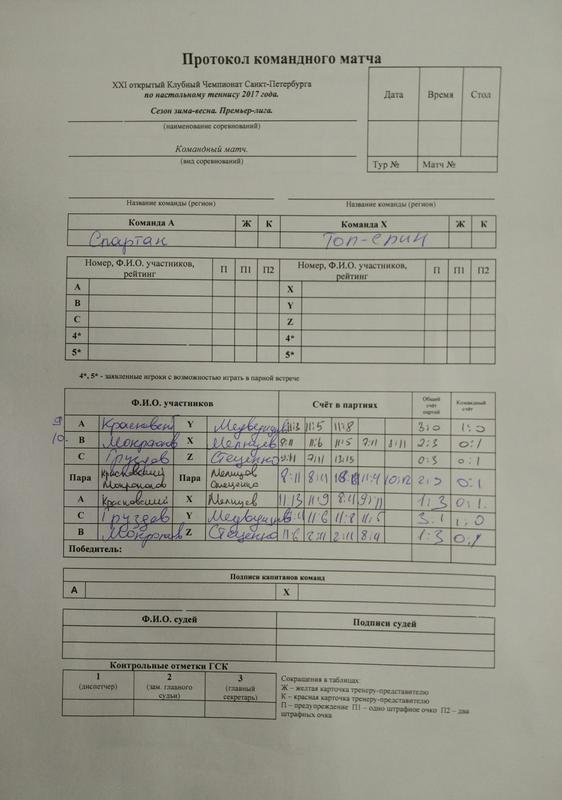 Протокол командного матча
XXI открытый Клубный Чемпионат Санкт-Петербурга
по настольному теннису 2017 года.
Сезон зима-весна. Премьер-лига.
(наименование соревнований)
Командный матч.
(вид соревнований)
Дата Время Стол
Тур № Матч №
Название команды (регион) Название команды (регион)
Команда А Ж К Команда Х Ж К
Спартан Топ-спин
Номер, Ф.И.О. участников, рейтинг П П1 П2 Номер, Ф.И.О. участников, рейтинг П П1 П2
А Х
В Y
С Z
4* 4*
5* 5*
4*, 5* - заявленные игроки с возможностью играть в парной встрече
Ф.И.О. участников Счёт в партиях Общий счёт партий Командный счёт
9 А Y 11:3 11:5 11:8 3:0 1:0
10. В Х 11:6 11:5 2:3 0:1
С Груздев Z Стеценко 13:15 0:3 0:1
Пара Красковский Пара 8:11 10:12 0:1
А Красковский Х 11:13 11:9 1:3 0:1.
С Груздев Y 11:6 11:8 11:5 3:1 1:0
В Z Стеценко 11:6 8:11 1:3 0:1
Победитель:
Подписи капитанов команд
А Х
Ф.И.О. судей Подписи судей
Контрольные отметки ГСК
1 (диспетчер) 2 (зам. главного судьи) 3 (главный секретарь)
Сокращения в таблицах:
Ж – желтая карточка тренеру-представителю
К – красная карточка тренеру-представителю
П – предупреждение П1 – одно штрафное очко П2 – два
штрафных очка